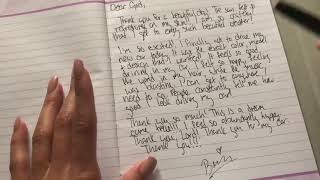 Dear God,
Thank you for a beautiful day! The sun felt so
refreshing on my skin! I am so grateful
that I got to enjoy such beautiful weather!
I'm so excited! I finally got to drive my
new car today! It was the exact color, model
+ design that I wanted. It feels so good
driving in my car. I felt so happy feeling
the wind in my hair, while the music
was blasting. I can get to anywhere I
need to go. People constantly tell me how
good I look driving my car!
Thank you so much! This is a dream
come true!! I feel so abundantly happy.
Thank you, Lord! Thank you for my car.
Thank you!!!